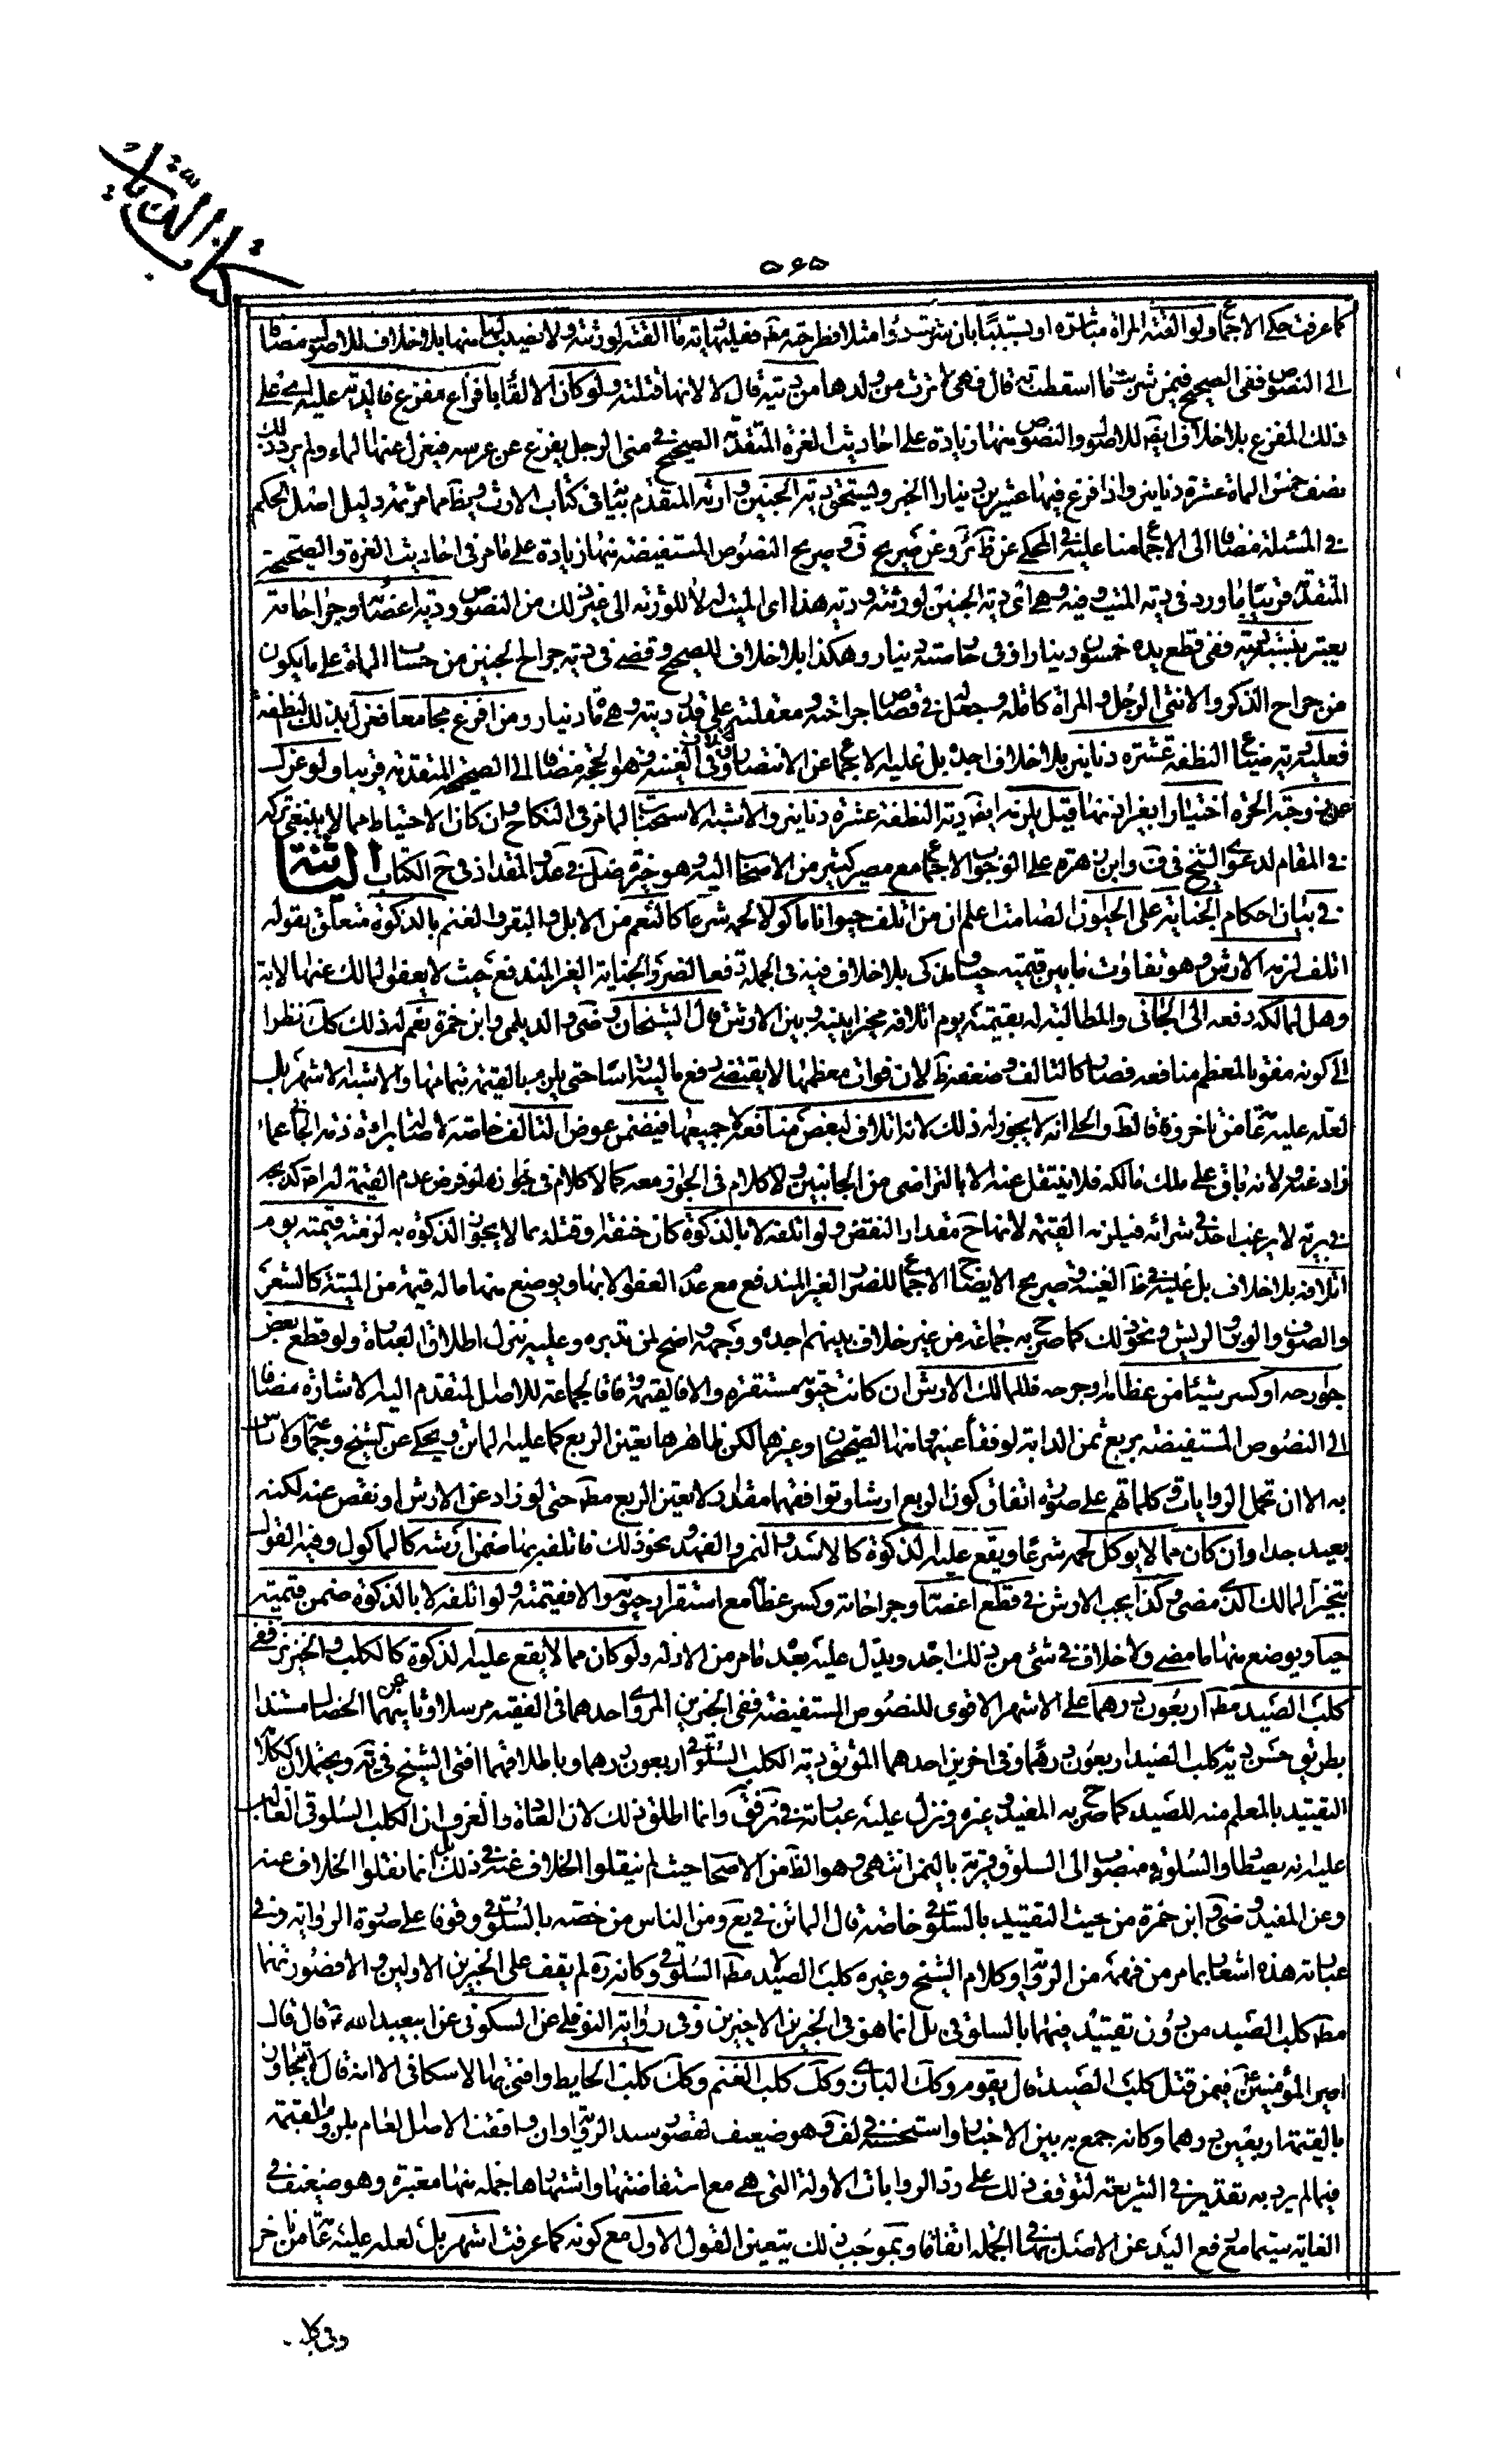 كتاب الديات
٥٦٥
كما عرفت حكي الاجماع ولو القته المراة مباشرة او تسبيبا بان شربت دواء مثلا فطرحته فعليها دية ما القته لورثته ولا نصيب لها منها بلا خلاف للاصول مضافا
الى النصوص ففى الصحيح فيمن شربت ما اسقطت به قال فهى لا ترث من ولدها من ديته قال لا لانها قتلته ولو كان الالقاء بافزاع مفزع فالدية عليه اى على
ذلك المفزع بلا خلاف ايضا للاصول والنصوص منها زيادة على احاديث الغرة المتقدمة الصحيح فى منى الرجل يفزع عن عرسه فيعزل عنها الماء ولم يرد ذلك
نصف خمس الماة عشرة دنانير واذا افرغ فيها عشرين دينارا الخبر ويستحق دية الجنين وارثه المتقدم بيانه فى كتاب الارث ويظهر مما مر ثمة دليل اصل الحكم
فى المسئلة مضافا الى الاجماع منا عليه فى المحكى عن ظاهر وعن صريح ف وصريح النصوص المستفيضة منها زيادة على ما مر فى احاديث الغرة والصحيحة
المتقدمة قريبا ما ورد فى دية الميت وفيه وهى اى دية الجنين لورثته ودية هذا اى الميت له لا للورثة الى غير ذلك من النصوص ودية اعضائه وجراحاته
يعتبر بنسبة ديته ففى قطع يده خمسون دينارا وفى حارصته دينار وهكذا بلا خلاف للصحيح وقضى فى دية جراح الجنين من حساب الماة على ما يكون
من جراح الذكر والانثى الرجل والمراة كاملة وجعل له فى قصاص جراحته ومعقلته على قدر ديته وهى ماة دينار ومن افزع مجامعا فعزل بذلك النطفة
فعليه دية ضياع النطفة عشرة دنانير بلا خلاف اجده بل عليه الاجماع عن الانتصار وف وفى الغنية وهو الحجة مضافا الى الصحيحة المتقدمة قريبا ولو عزل
عن زوجته الحرة اختيارا بغير اذنها قيل يلزمه ايضا دية النطفة عشرة دنانير والاشبه الاستحباب لما مر فى النكاح وان كان الاحتياط مما لا ينبغى تركه
فى المقام لدعوى الشيخ فى ف وابن زهرة على الوجوب الاجماع مع مصير كثير من الاصحاب اليه وهو خيرة الفاضل فى عد والمقداد فى ح الكتاب الثالثة
فى بيان احكام الجناية على الحيوان الصامت اعلم ان من اتلف حيوانا ماكولا لحمه شرعا كالنعم من الابل والبقر والغنم بالذكوة متعلق بقوله
اتلف لزمه الارش وهو تفاوت ما بين قيمته حيا ومذكى بلا خلاف فيه فى الجملة دفعا للضرر والجناية الغير المندفع حيث لا يعفو المالك عنها الا به
وهل لمالكه دفعه الى الجانى والمطالبة له بقيمته يوم اتلافه مخيرا بينه وبين الارش قال الشيخان وضى والديلمى وابن حمزة نعم له ذلك كك نظرا
الى كونه مفوتا لمعظم منافعه فصار كالتالف وضعفه ظ لان فوات معظمها لا يقتضى دفع ماليته راسا حتى يلزمه القيمة بتمامها والاشبه الاشهر بل
لعله عليه عامة من تاخر وفاقا لط والحلى انه لا يجوز له ذلك لانه اتلاف لبعض منافعه لا جميعها فيضمن عوض التالف خاصة لاصالة براءة ذمة الجانى عما
زاد عنه ولانه باق على ملك مالكه فلا ينتقل عنه الا بالتراضى من الجانبين ولا كلام فى الجواز معه كما لا كلام فى جوازه لو فرض عدم القيمة له اصلا كذبحه
فى برية لا يرغب احد فى شرائه فيلزمه القيمة لانها ح مقدار النقص ولو اتلفه لا بالذكوة كان خنقه او قتله بما لا يجوز الذكوة به لزمته قيمته يوم
اتلافه بلا خلاف بل عليه فى ظ الغنية وصريح الايضاح الاجماع للضرر الغير المندفع مع عدم العفو الا بها ويوضع منها ما له قيمة من الميتة كالشعر
والصوف والوبر والريش ونحو ذلك كما صرح به جماعة من غير خلاف بينهم اجده ووجهه واضح لمن تدبره وعليه ينزل اطلاق العبارة ولو قطع بعض
جوارحه او كسر شيئا من عظامه او جرحه فللمالك الارش ان كانت حيوته مستقرة والا فالقيمة وفاقا لجماعة للاصل المتقدم اليه الاشارة مضافا
الى النصوص المستفيضة بربع ثمن الدابة لو فقأ عينها منها الصحيحان وغيرهما لكن ظاهرها تعين الربع كما عليه الماتن ويحكى عن الشيخ وجماعة ولا باس
به الا ان تحمل الروايات وكلماتهم على صورة اتفاق كون الربع ارشا وتوافقهما مقدارا لا تعين الربع مطه حتى لو زاد عن الارش او نقص عنه لكنه
بعيد جدا وان كان مما لا يوكل لحمه شرعا ويقع عليه الذكوة كالاسد والنمر والفهد ونحو ذلك فاتلفه بها ضمن ارشه كالماكول وفيه القول
بتخير المالك الذى مضى وكذا يجب الارش فى قطع اعضائه وجراحاته وكسر عظامه مع استقرار حيوته والا فقيمته ولو اتلفه لا بالذكوة ضمن قيمته
حيا ويوضع منها ما مضى ولا خلاف فى شئ من ذلك اجده ويدل عليه بعد ما مر من الادلة ولو كان مما لا يقع عليه الذكوة كالكلب والخنزير ففى
كلب الصيد مطه اربعون درهما على الاشهر الاقوى للنصوص المستفيضة ففى الخبرين المروى احدهما فى الفقيه مرسلا وثانيهما عن الخصال مسندا
بطريق حسن دية كلب الصيد اربعون درهما وفى اخرين احدهما الموثق دية الكلب السلوقى اربعون درهما وباطلاقهما افتى الشيخ فى ية ويحتمل ان
التقييد بالمعلم منه للصيد كما صرح به المفيد وغيره ونزل عليه عبارته فى ير فق وانما اطلق ذلك لان العادة والعرف ان الكلب السلوقى الغالب
عليه انه يصطاد والسلوقى منصوب الى السلوق قرية باليمن انتهى وهو الظ من الاصحاب حيث لم ينقلوا الخلاف عنه فى ذلك بل انما نقلوا الخلاف عنه
وعن المفيد وضى وابن حمزة من حيث التقييد بالسلوقى خاصة قال الماتن فى يع ومن الناس من خصه بالسلوقى وقوفا على صورة الرواية وفى
عبارته هذه اشعار بما مر من فهمه من الرواية او كلام الشيخ وغيره كلب الصيد لا مطه السلوقى وكانه ره لم يقف على الخبرين الاولين والا فصورتهما
مطه كلب الصيد من دون تقييد فيهما بالسلوقى بل انما هو فى الخبرين الاخيرين وفى رواية النوفلى عن السكونى عن ابيعبد الله ع قال قال
امير المؤمنين ع فيمن قتل كلب الصيد قال يقومه وكك البازى وكك كلب الغنم وكك كلب الحايط وافتى بها الاسكافى الا انه قال لا يتجاوز
بالقيمة اربعين درهما وكانه جمع به بين الاخبار واستحسنه فى لف وهو ضعيف لقصور سند الرواية وان وافقت الاصل العام بلزوم القيمة
فيما لم يرد به تقدير فى الشريعة لتوقف ذلك على رد الروايات الاولة التى هى مع استفاضتها واشتهارها جملة منها معتبرة وهو ضعيف فى
الغاية سيما مع رفع اليد عن الاصل بها فى الجملة اتفاقا وبموجب ذلك يتعين القول الاول مع كونه كما عرفت اشهر بل لعله عليه عامة من تاخر
وفى كلب